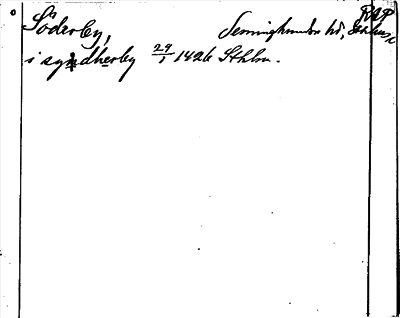 Söderby, Semminghundra hd, RAP
i syndherby 29/1 1426 Sthlm.